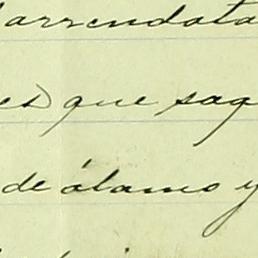 arrendata
es) que sag
de álamo y